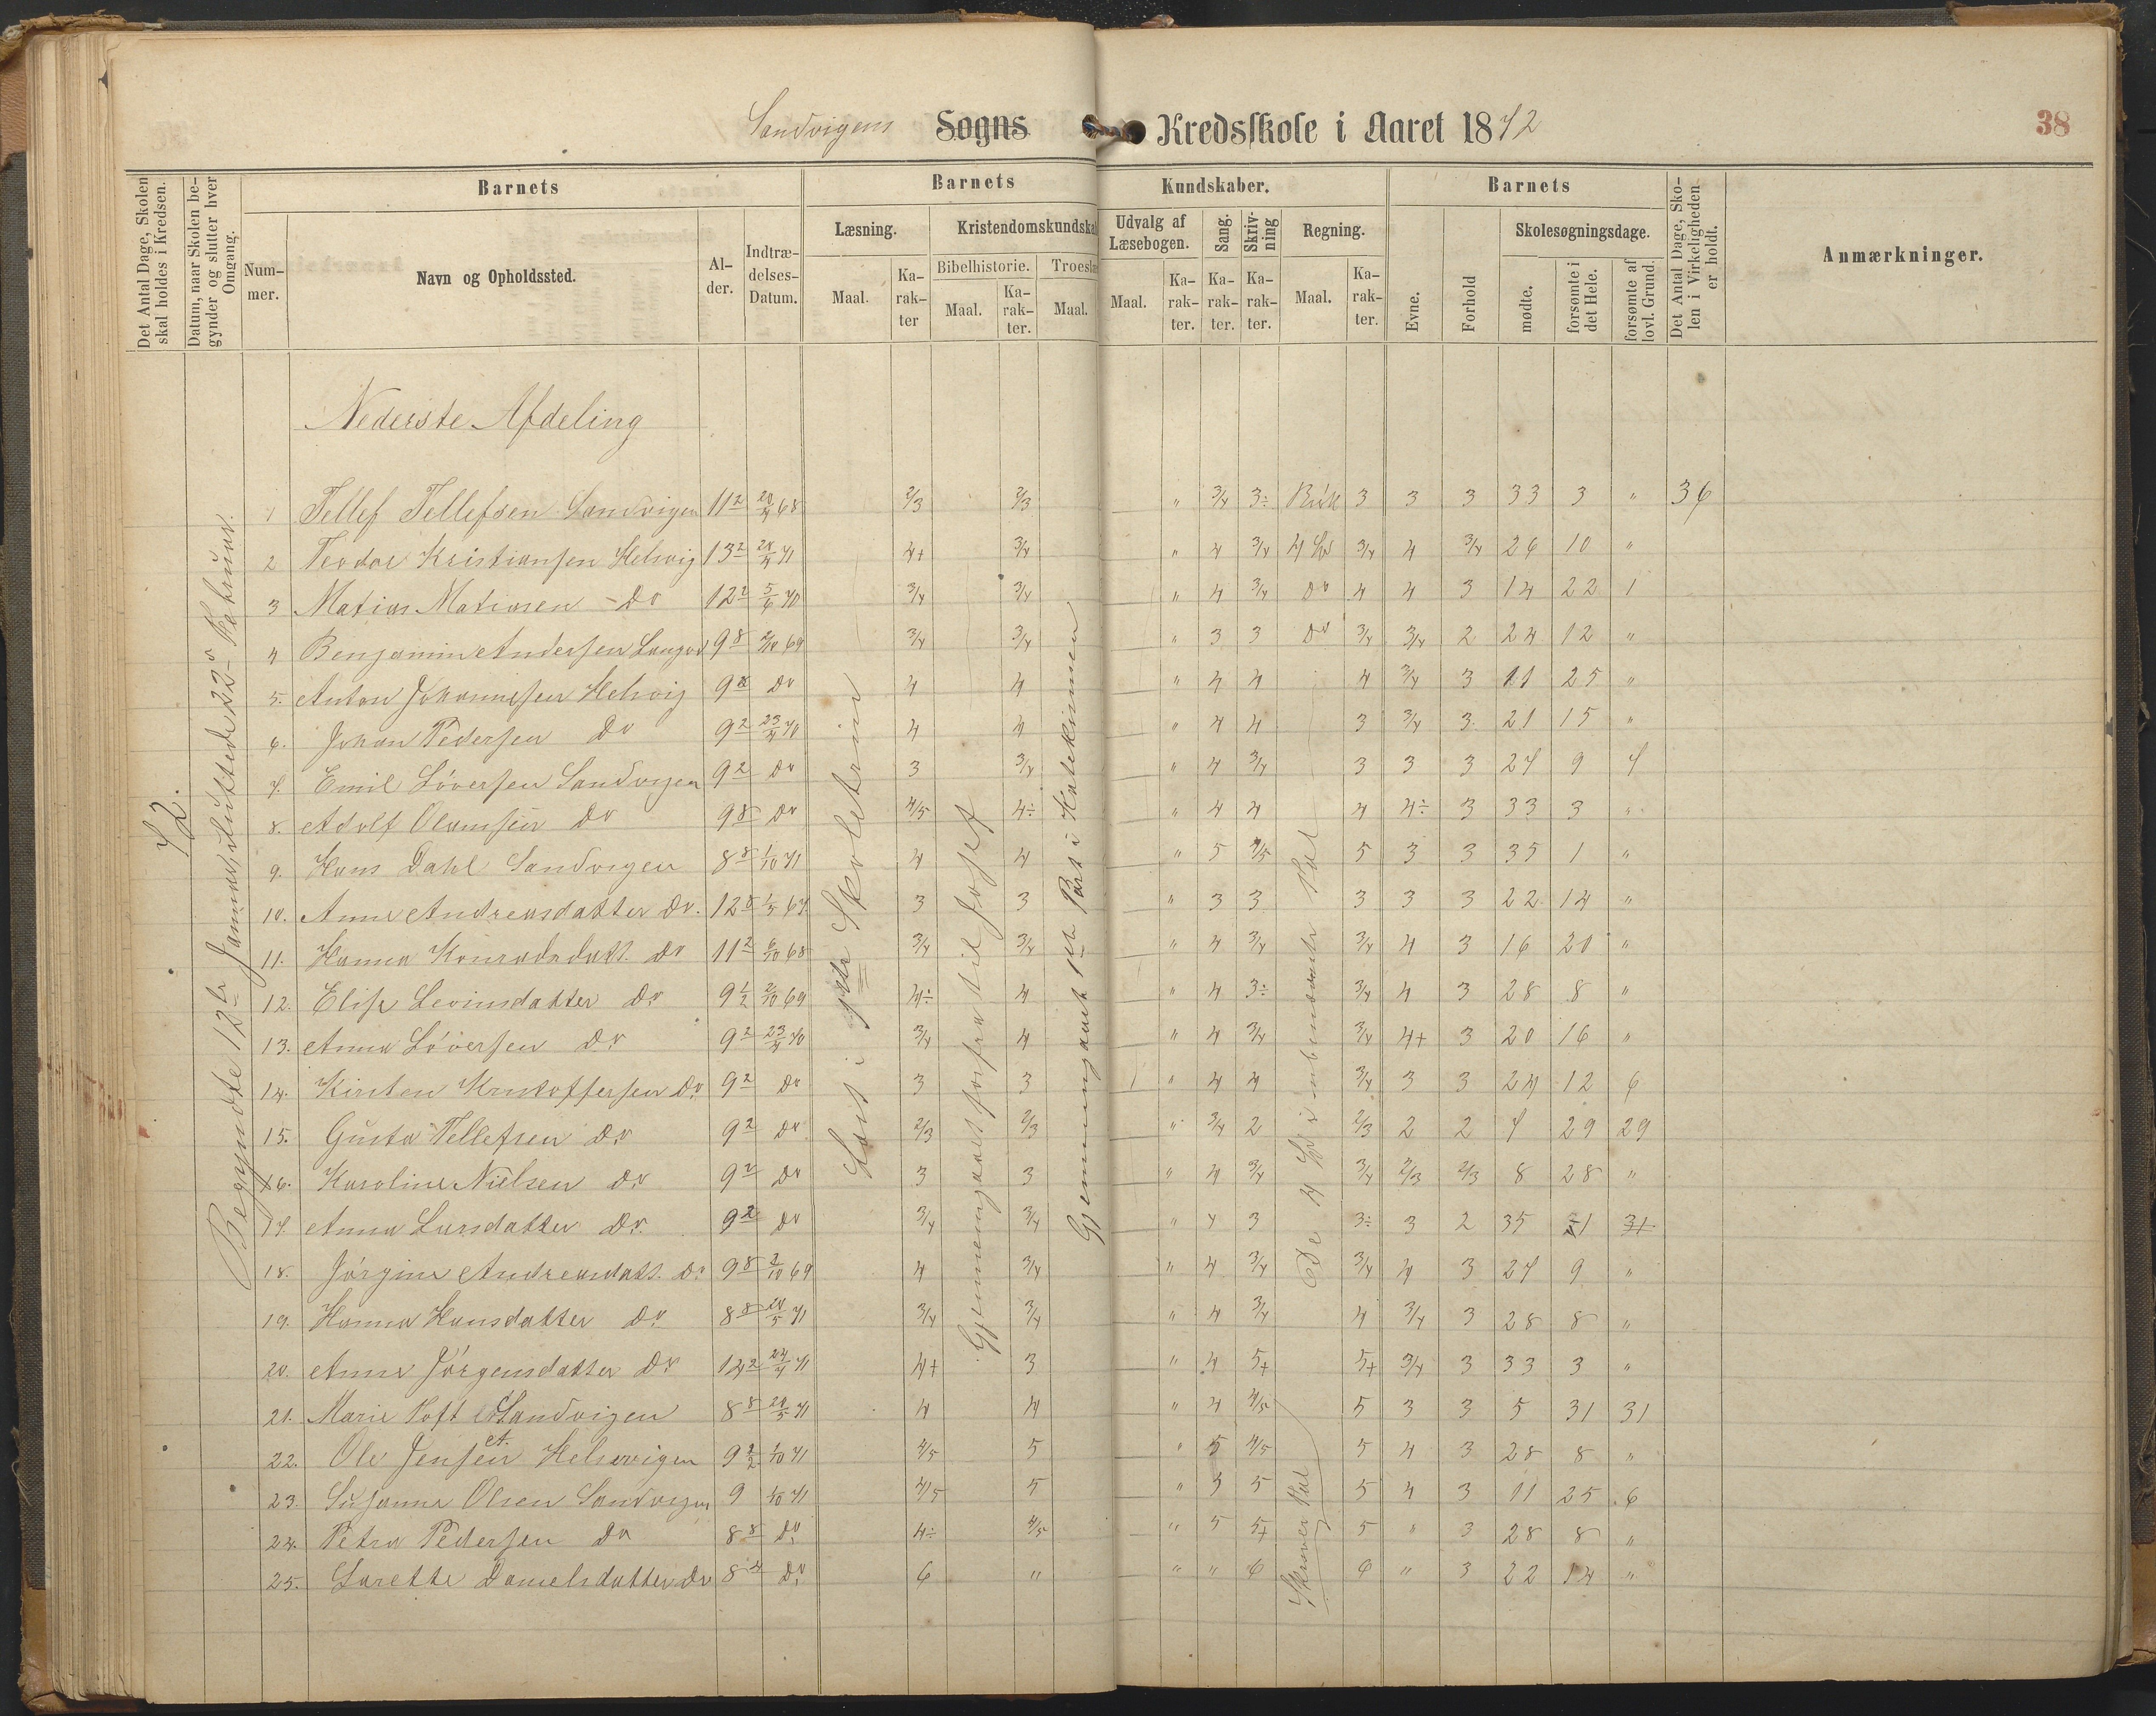 Sandvigens Sogns Kredsskole i Aaret 1872
38
Det Antal Dage, Skolen skal holdes i Kredsen.
Datum, naar Skolen begynder og slutter hver Omgang.
Barnets
Nummer.
Navn og Opholdssted.
Alder.
Indtrædelses-Datum.
Barnets Kundskaber.
Læsning.
Maal.
Karakter
Kristendomskundska
Bibelhistorie.
Maal.
Karakter.
Troeslæ
Maal.
Udvalg af Læsebogen.
Maal.
Karakter.
Sang.
Karakter.
Skrivning
Karakter.
Regning.
Maal.
Karakter.
Barnets
Evne.
Forhold
Skolesøgningsdage.
mødte.
forsømte i det Hele.
forsømte af lovl. Grund.
Det Antal Dage, Skolen i Virkeligheden er holdt.
Anmærkninger.
Nederste Afdeling
72.
Begyndte 12te Januar, sluttede 22de Februar.
Læst i
Skoletrin
Gjennemgaaet forfra til Josef
Gjennemgaaet 1ste Part i Katekismen
De 4
Skriver Tal
1 Tellef Tellefsen Sandvigen 11 2 20/4 68 2/3 2/3 " 3/4 3÷ Brøk 3 3 3 33 3 " 36
2 Teodor Kristiansen Helvig 13 2 24/4 71 4+ 3/4 " 4 3/4 3/4 4 3/4 26 10 "
3 Matias Matiasen - Do 12 2 5/6 70 3/4 3/4 " 4 3/4 Do 4 4 3 14 22 1
4 Benjamin Andersen 9 8 2/10 69 3/4 3/4 " 3 3 Do 3/4 3/4 2 24 12 "
5. Anton Johannesen Helvig 9 8 Do 4 4 " 4 4 4 3/4 3 11 25 "
6. Johan Pedersen Do 9 2 23/4 70 4 4 " 4 4 3 3/4 3 21 15 "
7. Emil Løversen Sandvigen 9 2 Do 3 3/4 " 4 3/4 3 3 3 27 9 7
8. Adolf Olamsen Do 9 8 Do 4/5 4÷ " 4 4 4 4÷ 3 33 3 "
9. Hans Dahl Sandvigen 8 8 1/10 71 4 4 " 5 4/5 5 3 3 35 1 "
10. Anne Andreasdatter Do. 12 8 1/5 67 3 3 " 3 3 3 3 3 22 14 "
11. Hanna Konradsdatt. Do 11 2 6/10 68 3/4 3/4 " 4 3/4 3/4 4 3 16 20 "
12. Elise Levinsdatter Do 9 1/2 2/10 69 4÷ 4 " 4 3÷ 3/4 4 3 28 8 "
13. Anna Løversen Do 9 2 23/4 70 3/4 4 " 4 3/4 3/4 4+ 3 20 16 "
14. Kirsten Kristoffersen Do 9 2 Do 3 3 " 4 4 3/4 3 3 24 12 6
15. Gusta Tellefsen Do 9 2 Do 2/3 2/3 " 3/4 2 2/3 2 2 7 29 29
16. Karoline Nielsen Do 9 2 Do 3 3 " 4 3/4 3/4 2/3 2/3 8 28 "
17. Anna Larsdatter Do. 9 2 Do 3/4 3/4 " 4 3 3÷ 3 2 35 1 31
18. Jørgine Andreasdatt. Do 9 8 2/10 69 4 3/4 " 4 3/4 3/4 4 3 27 9 "
19. Hanna Hansdatter Do 8 8 20/5 71 3/4 3/4 " 4 3/4 4 3/4 3 28 8 "
20. Anne Jørgensdatter Do 14 2 24/4 71 4+ 3 " 4 5+ 5+ 3/4 3 33 3 "
21. Marie Toft Sandvigen 8 8 20/5 71 4 4 " 4 4/5 5 3 3 5 31 31
22. Ole A. Jensen Helvigen 9 1/2 1/10 71 4/5 5 " 5 4/5 5 4 3 28 8 "
23. Susanne Olsen Sandvigen 9 1/10 71 4/5 5 " 5 5 5 4 3 11 25 6
24. Petra Pedersen Do 8 8 Do 4÷ 4/5 " 5 5+ 5 " 3 28 8 "
25. Larette Danielsdatter Do 8 4 Do 6 " " " 6 6 " 3 22 14 "